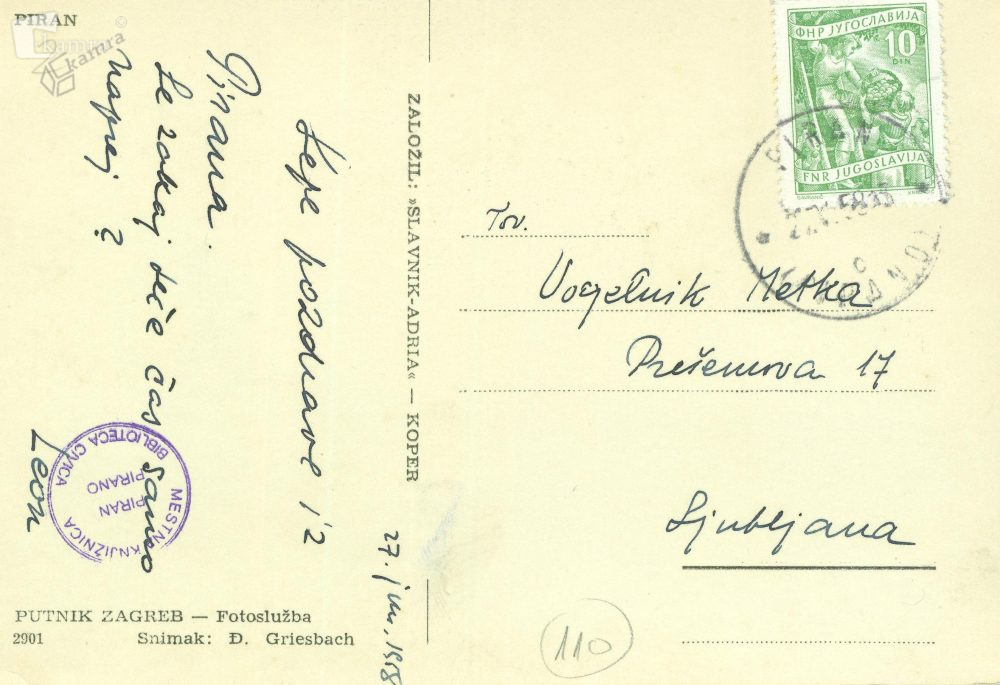 PIRAN
kamra
kamra
27. jun. 1958
Lepe pozdrave iz
Pirana.
Le zakaj teče čas samo
naprej?
Leon
MESTNA KNJIŽNICA
PIRAN
PIRANO
BIBLIOTECA CIVICA
PUTNIK ZAGREB — Fotoslužba
2901 Snimak: Đ. Griesbach
ZALOŽIL: »SLAVNIK-ADRIA« — KOPER
ФНР ЈУГОСЛАВИЈА
10
DIN
FNR JUGOSLAVIJA
PIRAN
58
PIRANO
Tov.
Vogelnik Metka
Prešernova 17
Ljubljana
110